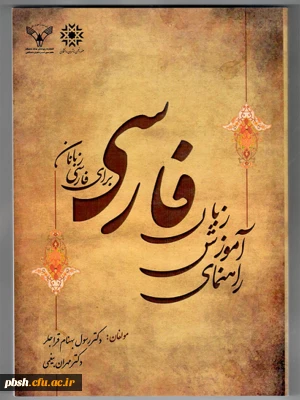 راهنمای
آموزش
زبان
فارسی
برای فارسی زبانان
مولفان: دکتر رسول بهنام قراجلر
دکتر مهران بیغمی
pbsh.cfu.ac.ir